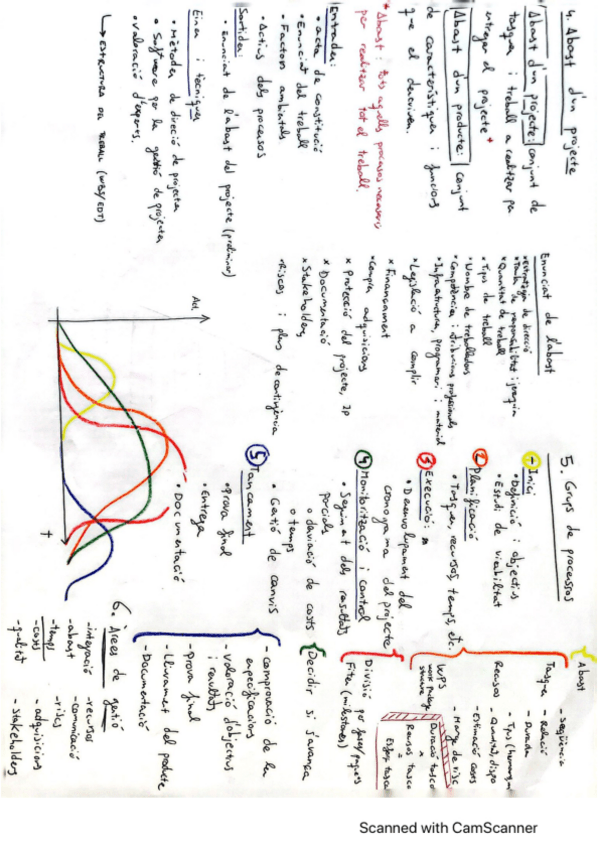 4. Abast d'un projecte
Abast d'un projecte: conjunt de
tasques i treball a realitzar per
entregar el projecte*
Abast d'un producte: conjunt
de característiques i funcions
q-e el descriuen.
*Abast: tots aquells processos necessaris
per realitzar tot el treball.
Entrades:
• acta de constitució
• Enunciat del treball
• Factors ambientals
• Actius dels processos
Sortides:
• Enunciat de l'abast del projecte (preliminar)
Eines i tècniques
• Mètodes de direcció de projectes
• Software per la gestió de projectes
• Valoració d'experts.
↳ ESTRUCTURA DEL TREBALL (WBS/EDT)
Enunciat de l'abast
• estratègia de direcció
• Quantitat de treball
• Tipus de treball
• Nombre de treballadors
• Competència i atribucions professionals
• Infraestructura, programari i material
• Legislació a complir
* Finançament
• Compra adquisicions
* Protecció del projecte, IP
* Documentació
* Stakeholders
• Riscos i plans de contingència
Act.
t
5. Grups de processos
1 Inici
• Definició i objectius
• Estudi de viabilitat
2 Planificació
• Tasques, recursos, temps, etc.
3 Execució:
• Desenvolupament del
cronograma del projecte
4 Monitorització i control
• Seguiment dels resultats
parcials
o desviació de costs
o temps
• Gestió de canvis
5 Tancament
• Prova final
• Entrega
• Documentació
Abast
Tasques
- seqüència
- Relació
- Durada
Recursos
- Tipus (humans,
- Quantitat, dispo
- Estimació costs
WPS
work package
structure
- Marge de risc
Duració tasca
Recursos tasca
Esforç tasca
Divisió per fases/paquets
Fites (milestones)
Decidir si s'avança
- comprovació de les
especificacions
- valoració d'objectius
i resultats
- Prova final
- Lliurament del producte
- Documentació
6. Àrees de gestió
- integració
- abast
- temps
- costs
- qualitat
- recursos
- comunicació
- riscs
- adquisicions
- stakeholders
Scanned with CamScanner